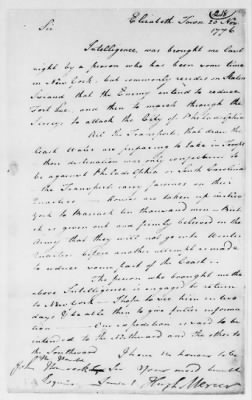 Elizabeth Town 20 Nov
1776
Sir
Intelligence, was brought me last
night by a person who has been some time
in New York, but commonly resides on Staten
Island, that the Enemy intend to reduce
Fort Lee, and then to march through the
Jerseys to attack the City of Philadelphia
All the Transports, that draw the
least Water are preparing to take in Troops
their destination was only conjectured to
be against Philadelphia or South Carolina
the Transports carry
Houses are taken up in New
York to Barrack ten thousand men
it is given out and firmly believed in the
Army that they will not go into Winter
Quarters before another attempt is made
to reduce some part of the Coast
The person who brought me the
above Intelligence is engaged to return
to New York
days & be able then to give fuller infor-
mation One expedition is said to be
intended to the Northward and the other to
the Southward
I have the honour to be
John Hancock Sir Your most humble
Esquire Hugh Mercer